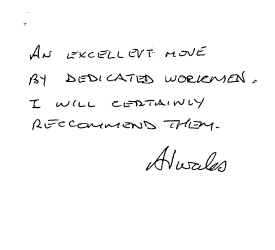 AN EXCELLENT MOVE
BY DEDICATED WORKMEN.
I WILL CERTAINLY
RECCOMMEND THEM.